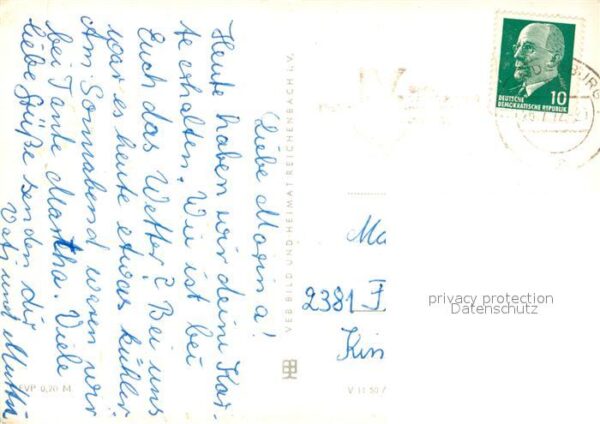 Liebe Marina!
Heute haben wir deine Kar-
te erhalten. Wie ist bei
Euch das Wetter? Bei uns
war es heute etwas kühler.
Am Sonnabend waren wir
bei Tante Martha. Viele
liebe Grüße senden dir
Vati und Mutti
VEB BILD UND HEIMAT REICHENBACH i. V.
EVP 0,20 M
V 11 50 /
DEUTSCHE
DEMOKRATISCHE REPUBLIK
10
BURG
Ma
2381 F
Kin
privacy protection
Datenschutz